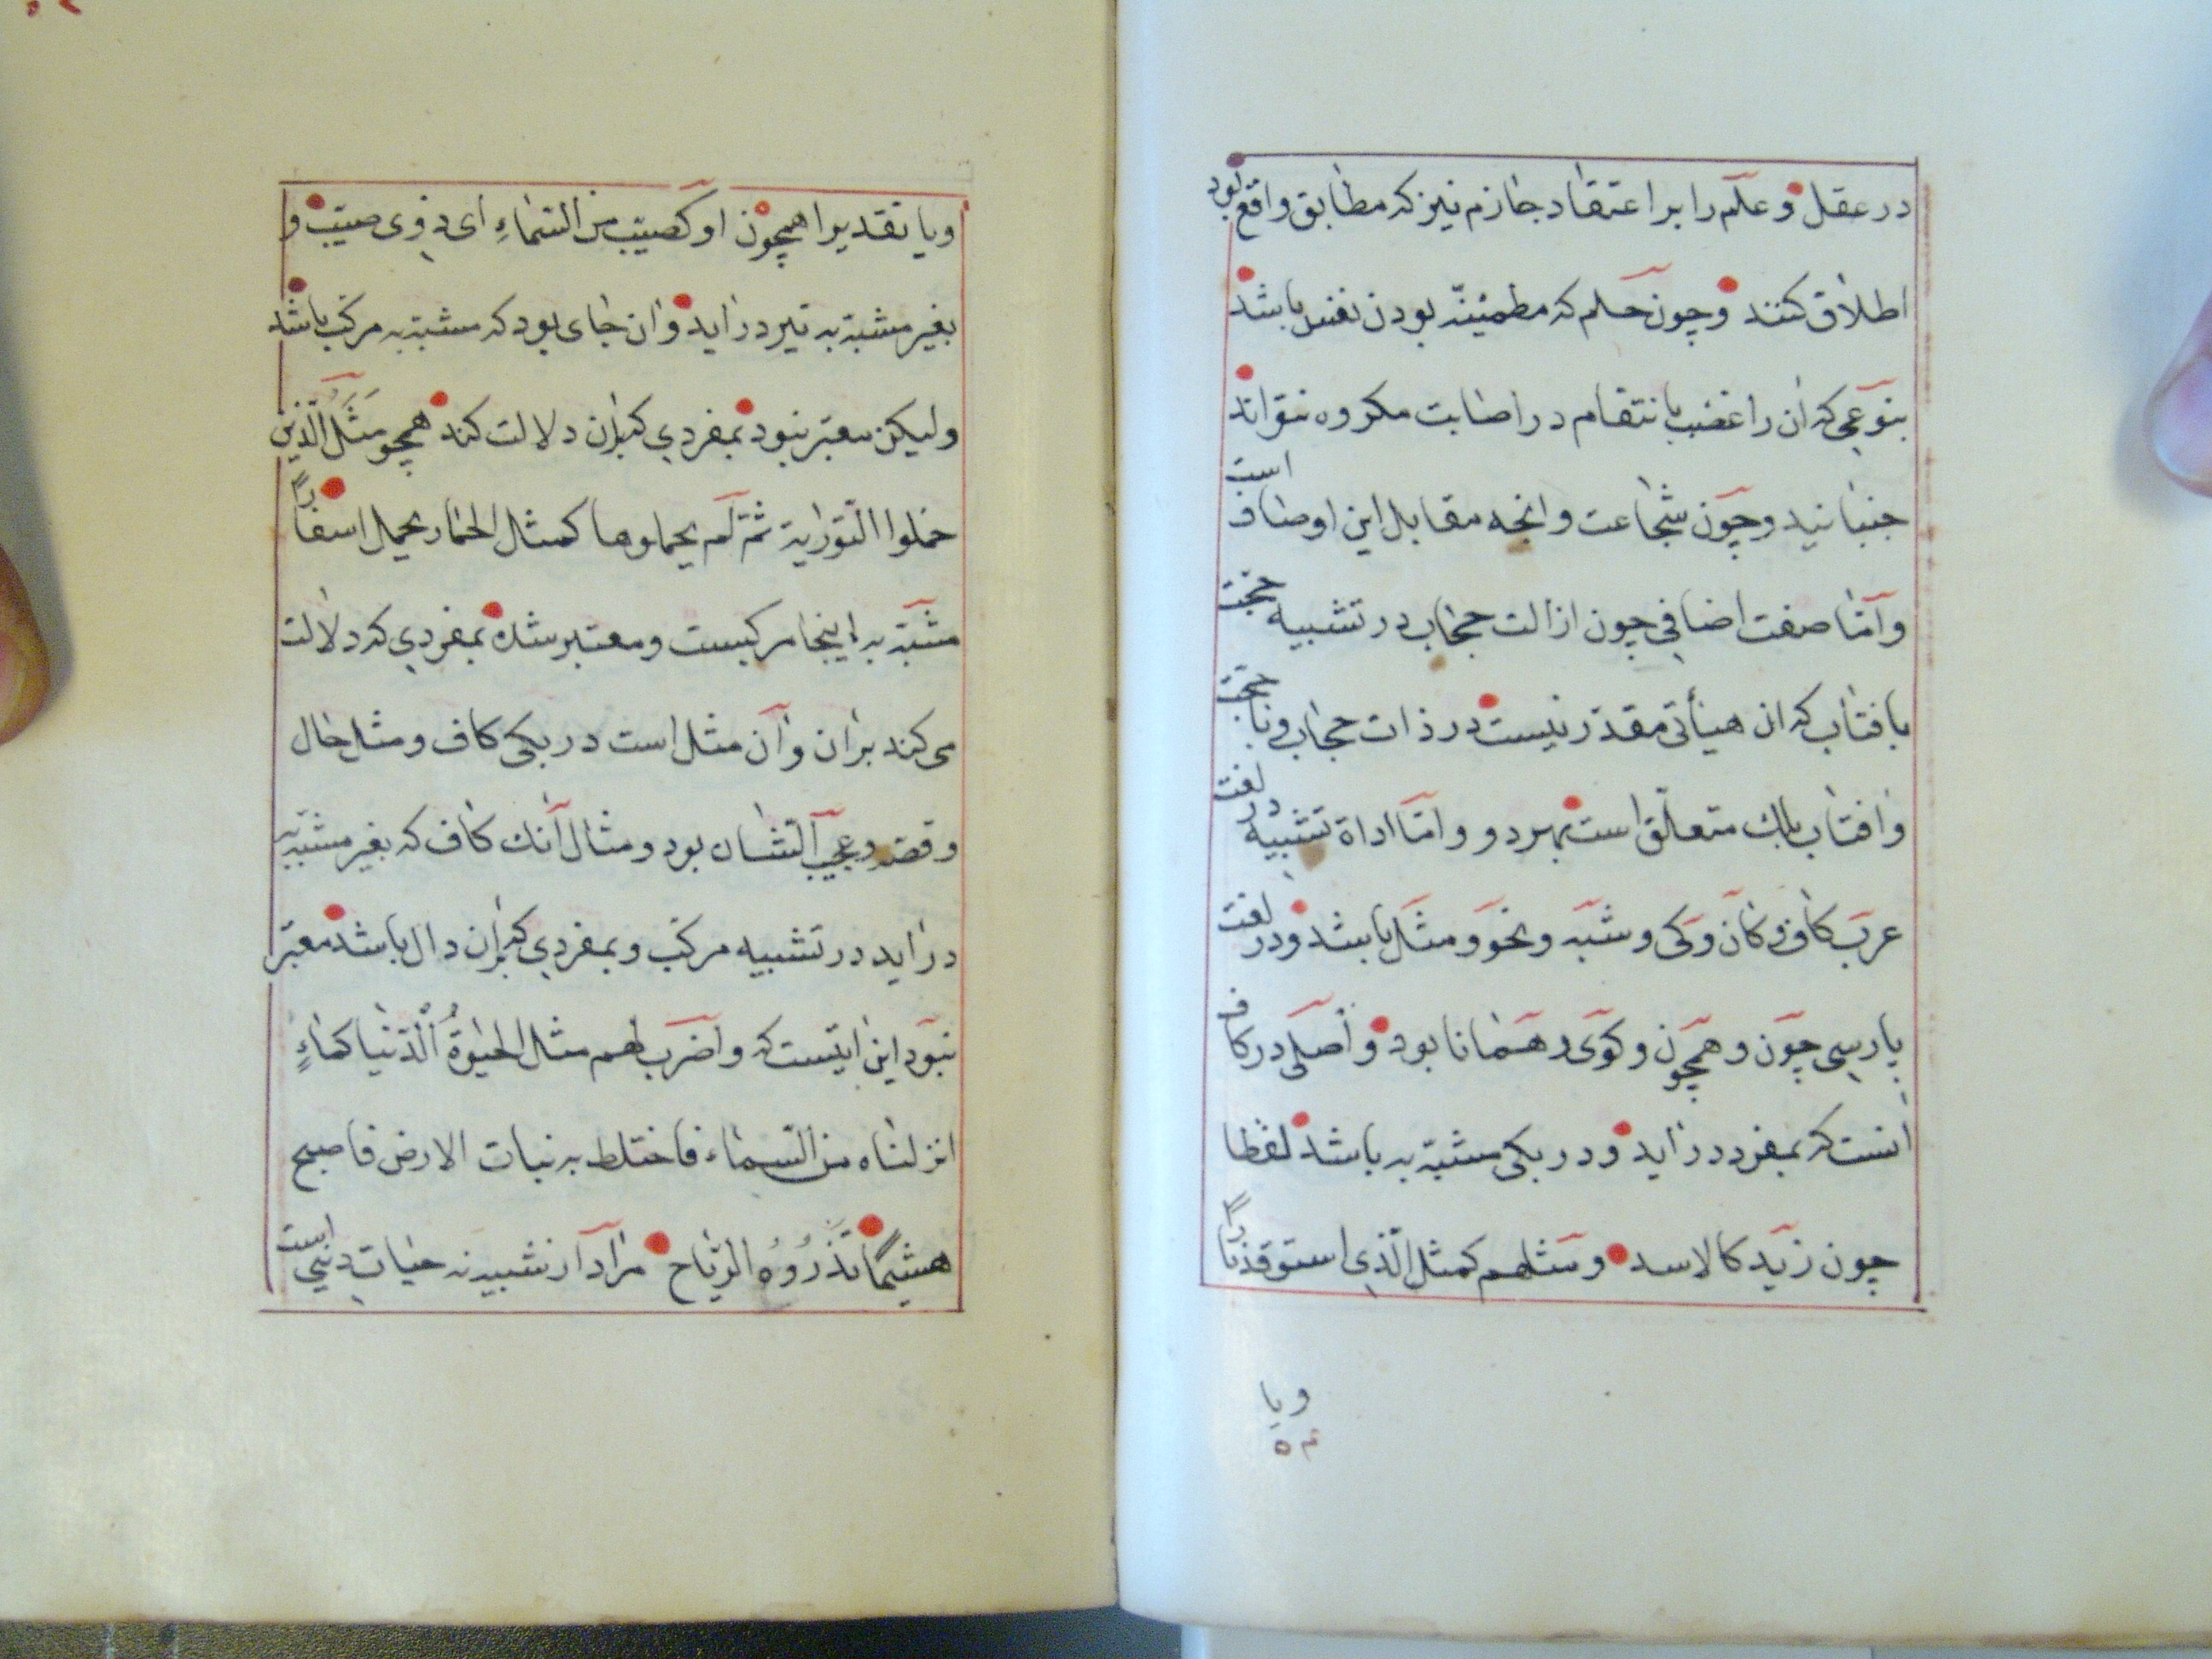 در عقل و علم را بر اعتقاد جازم نیز که مطابق واقع بود
اطلاق کنند و چون حلم که مطمئینّه بودن نفس باشد
بنوعی که ان را غضب با نتقام در اصابت مکروه نتواند
جنبانید و چون شجاعت وانچه مقابل این اوصاف است
و امّا صفت اضافی چون ازالت حجاب در تشبیه حجّت
بافتاب که ان هیأتی مقدّر نیست در ذات حجاب و نا حجّت
و افتاب بلك متعلّق است بهر دو و امّا اداة تشبیه در لغت
عرب کاف و کأن و کی و شبه و نحو و مثل باشد و در لغت
پارسی چون و همچون و کوی و همانا بود و اصلی در کاف
انست که بمفرد در اید و در یکی مشبّه به باشد لفظا
چون زید کالاسد و مثلهم کمثل الّذی استوقد نارًا
ویا
۵۴
ویا تقدیرا همچون او کصیّب من السّماءِ ای ذوی صیّب و
بغیر مشبّه به نیز در اید و ان جای بود که مشبّه به مرکّب باشد
ولیکن معتبر نبود بمفردی که بران دلالت کند همچو مَثَلُ الّذین
حمّلوا التّوراية ثمّ لم یحملوها کمثل الحمار یحمل اسفارًا
مشبّه به اینجا مرکبست و معتبر شده بمفردی که دلالت
می کند بران و آن مثل است در یکی کاف و مثل حال
و قصّه و عجیب الشّان بود و مثال آنك کاف که بغیر مشبّه به
در اید در تشبیه مرکّب و بمفردی که بران دال باشد معتبر
نبود این ایتست که و اضرب لهم مثل الحیٰوةُ الدّنیا کماءٍ
انزلناه من السّماء فاختلط به نبات الارض فاصبح
هشیمًا تَذْرُوُه الرّیاح مراد از تشبیه نه حیات دنیی است